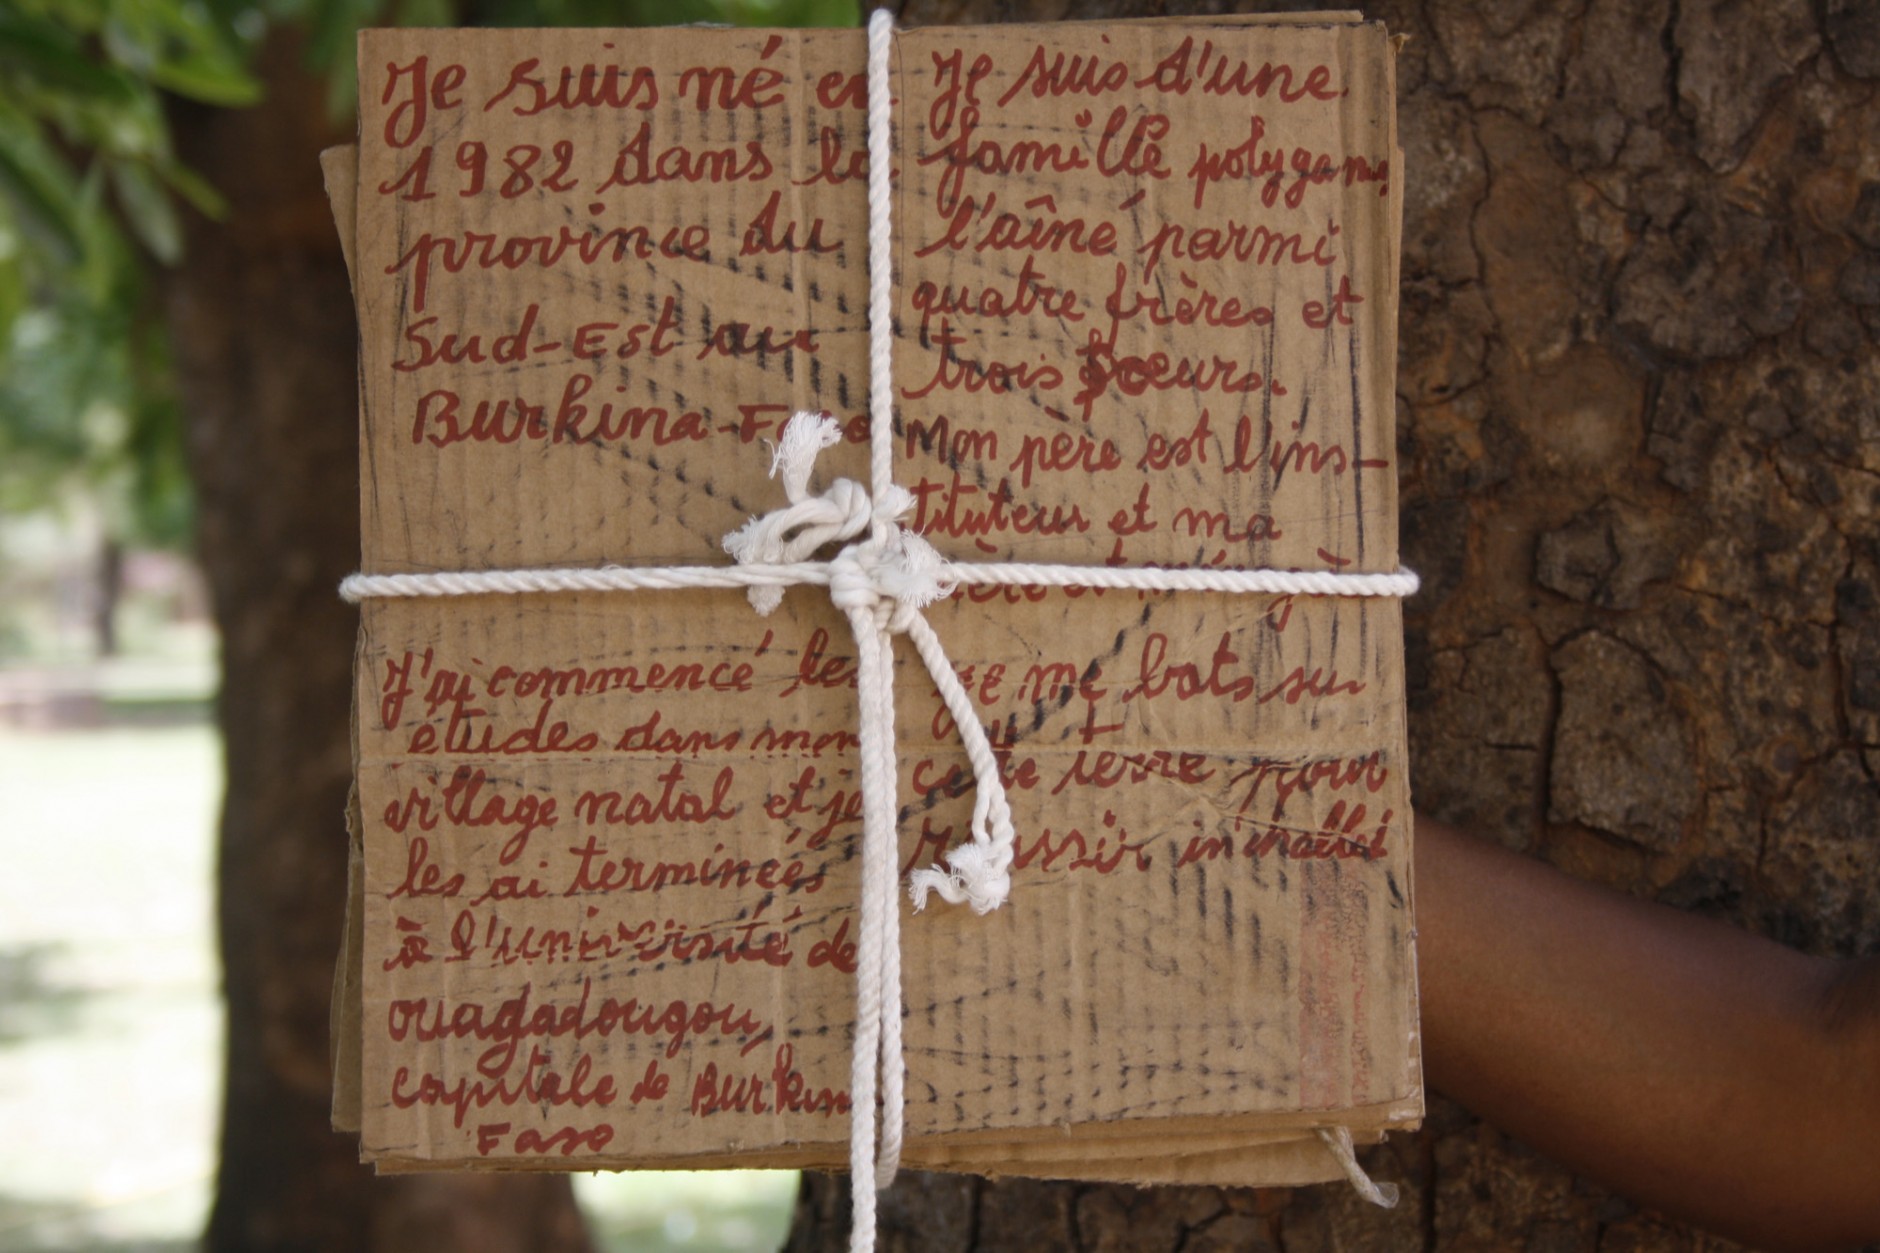 Je suis né en
1982 dans la
province du
Sud-Est au
Burkina-Faso
Je suis d'une
famille polygame,
l'aîné parmi
quatre frères et
trois soeurs.
Mon père est l'ins-
tituteur et ma
J'ai commencé les
études dans mon
village natal et je
les ai terminées
à l'université de
ouagadougou,
capitale de Burkina
Faso
Je me bats sur
cette terre pour
réussir